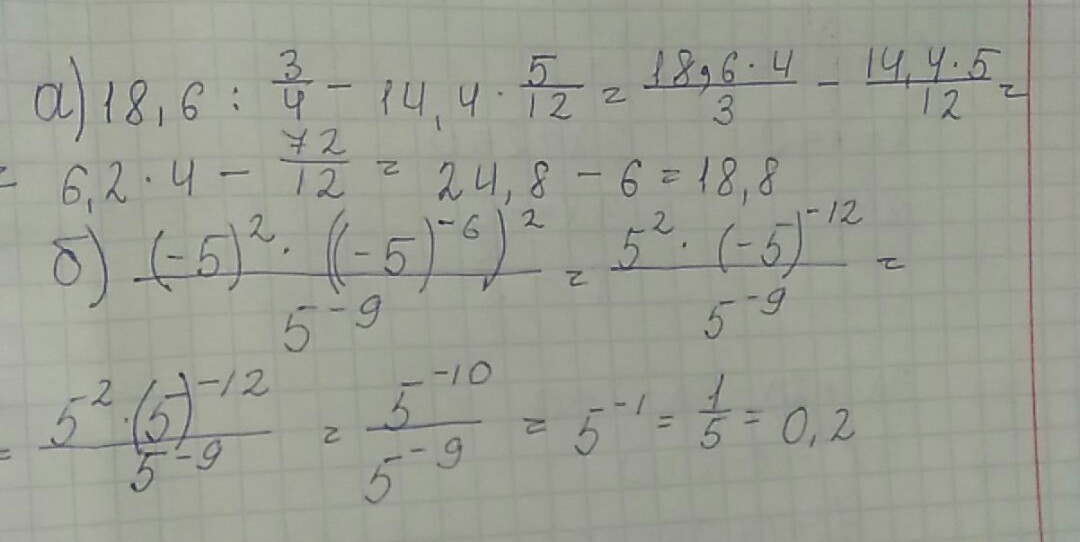 а) 18,6 : 3/4 - 14,4 · 5/12 = 18,6·4/3 - 14,4·5/12 =
= 6,2·4 - 72/12 = 24,8 - 6 = 18,8
б) (-5)²·((-5)⁻⁶)²/5⁻⁹ = 5²·(-5)⁻¹²/5⁻⁹ =
= 5²·(5)⁻¹²/5⁻⁹ = 5⁻¹⁰/5⁻⁹ = 5⁻¹ = 1/5 = 0,2